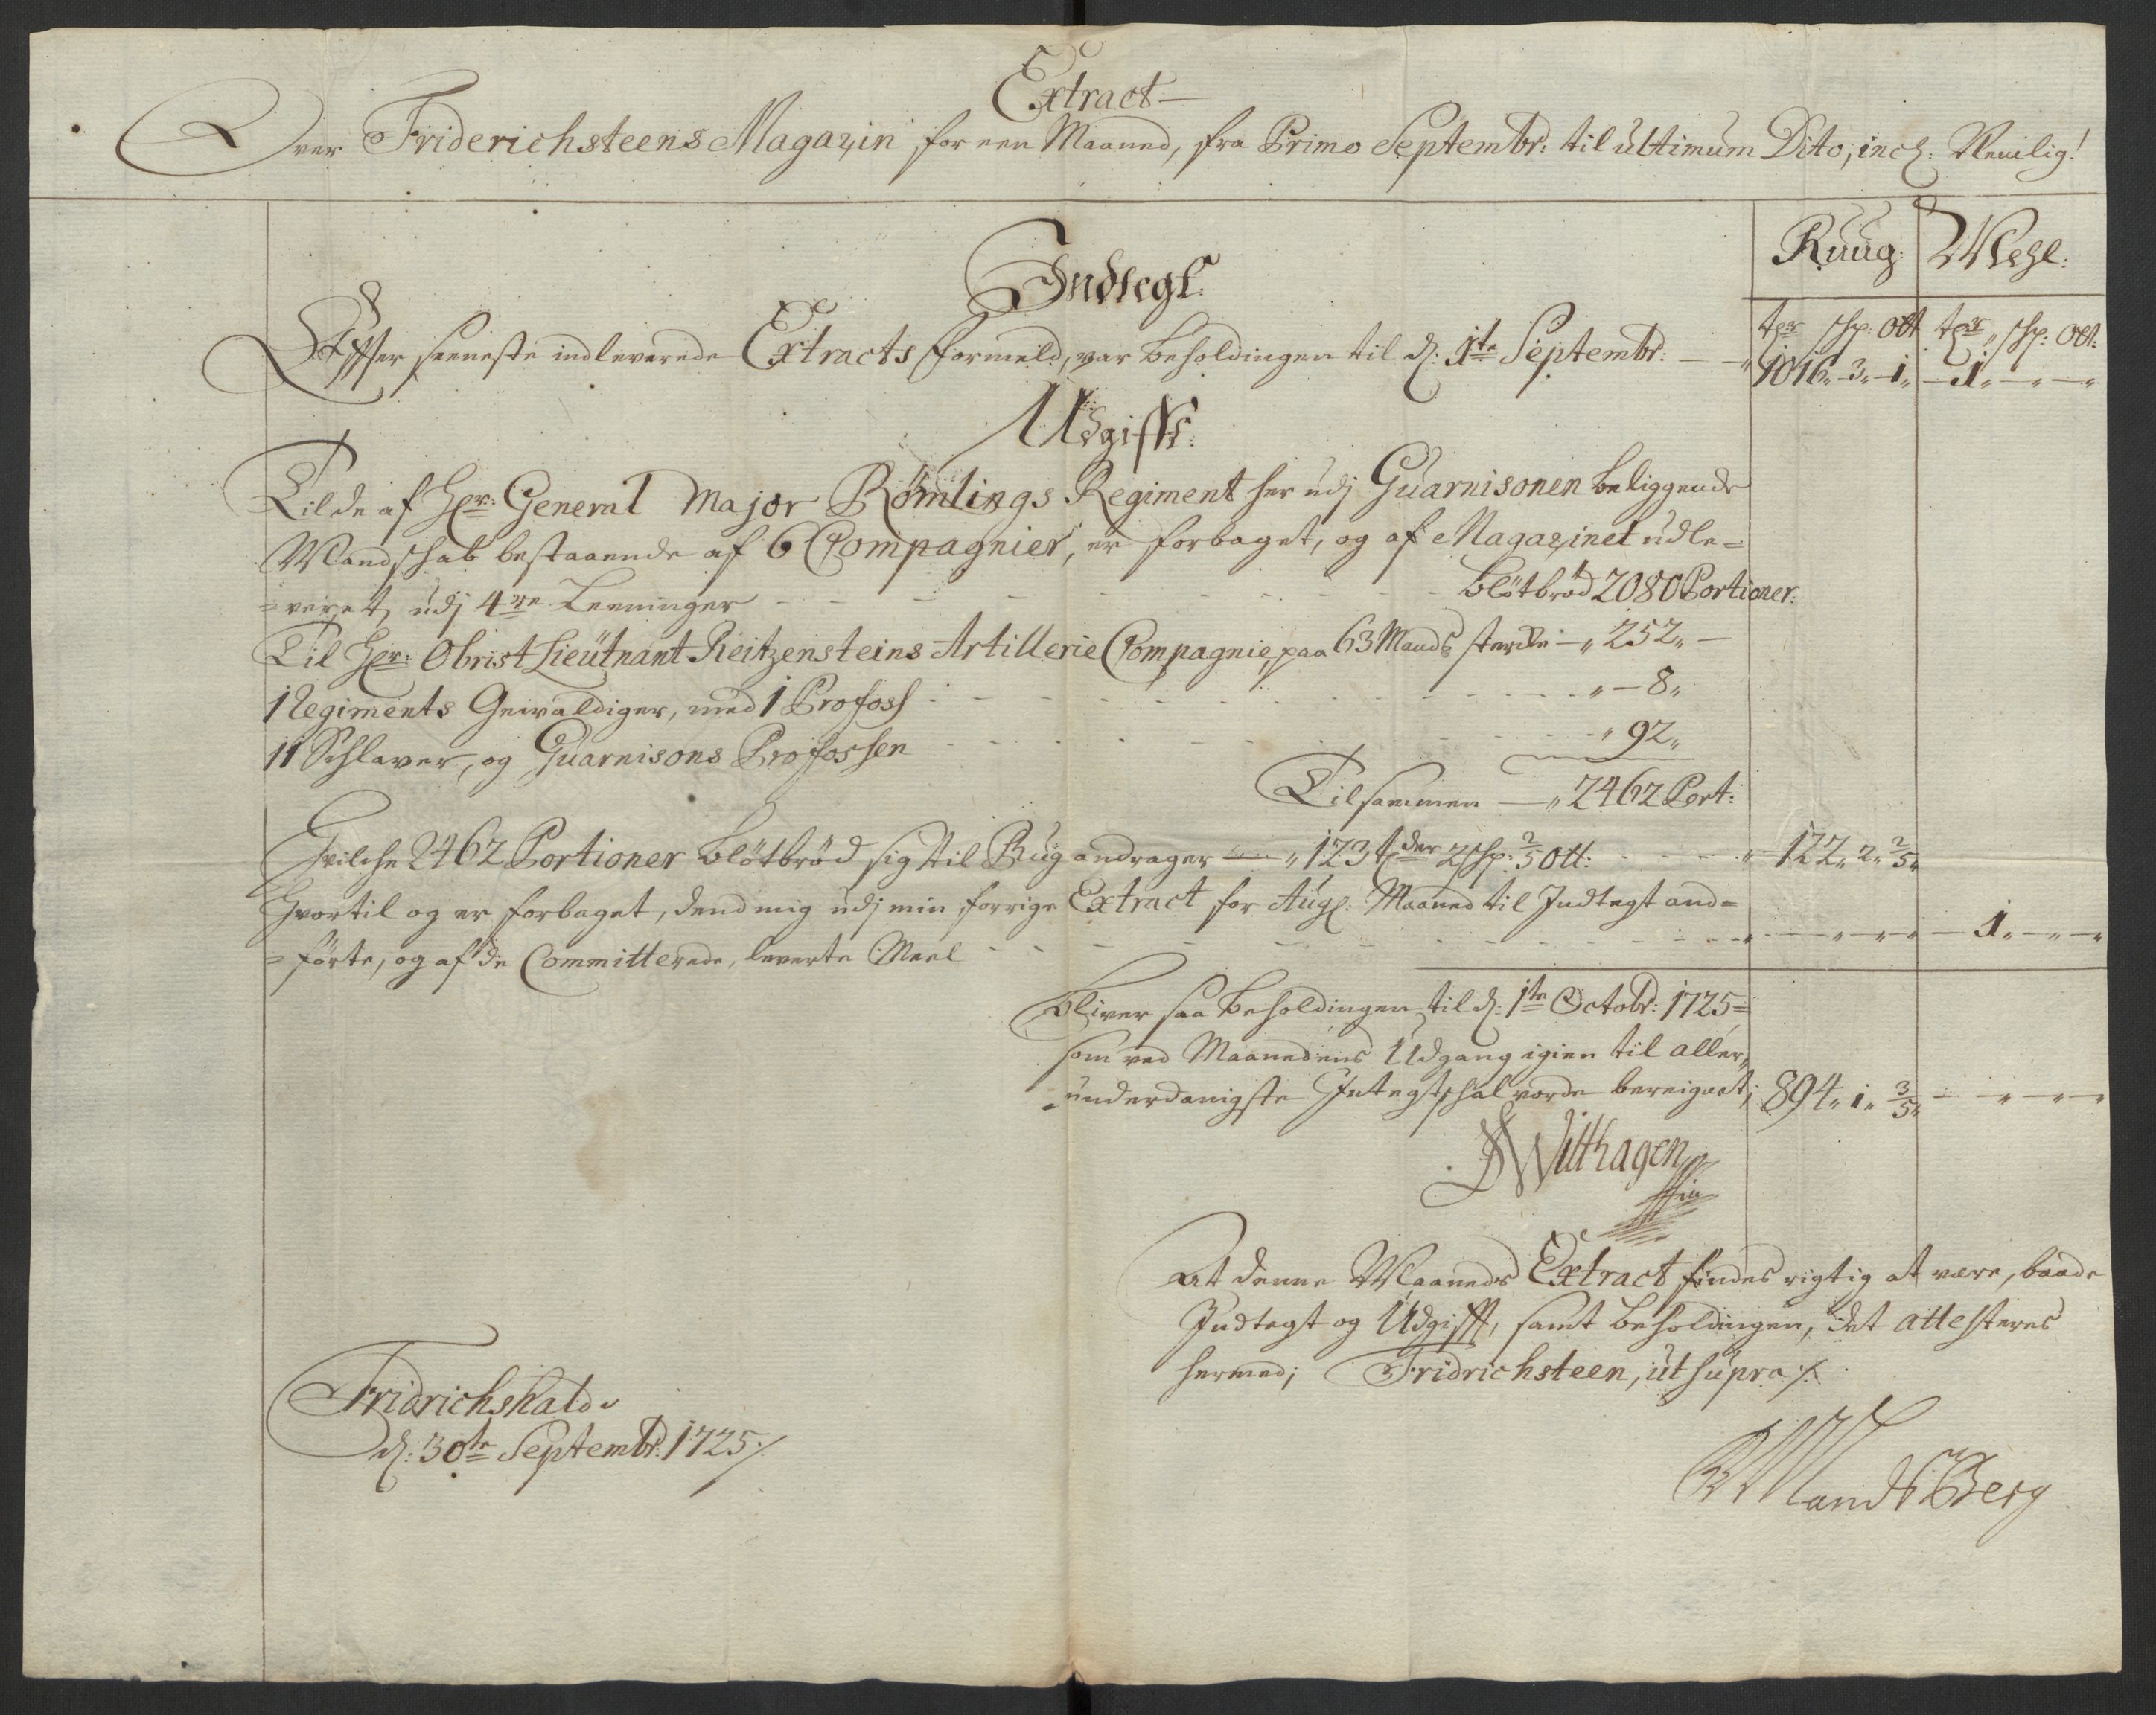 Extract
Over Friderichsteens Magazin for een Maaned, fra Primo Septembr: til ultimum Dito, incl: Nemlig!
Ruug: Mehl:
Indtegt:
tdr skp: ott tdr skp: ott:
Effter seeneste indleverede Extracts formeld, var beholdingen til d: 1te Septembr: 1016„ 3„ 1„ 1„ — „ — „
Udgifft:
Til de af Hr: General Major Römlings Regiment her udj Guarnisonen beliggende
Mandskab bestaaende af 6 Compagnier, er forbaget, og af Magazinet udle=
=veret, udj 4re Leeninger - - - blötbröd 2080 Portioner:
Til Hr: Obrist Lieutnant Reitzensteins Artillerie Compagnie, paa 63 Mands sterke — „ 252„ —
1 Regiments Gewaldiger, med 1 Profoss - - - „ — 8„
11 Schlaver, og Guarnisons Profossen - - - „ 92„
Tilsammen — „ 2462 Port:
Hvilche 2462 Portioner blötbröd sig til Rug andrager — „ 123 tder 2 skp: 2/5 ott: - - - 122„ 2„ 2/5„
Hvortil og er forbaget, dend mig udj min forrige Extract for Aug: Maaned til Indtegt and=
=förte, og af de Committerede, leverte Meel - - - 1„ — „ — „
bliver saa beholdingen til d: 1te Octobr: 1725=
som ved Maanedens Udgang igien til aller„
„underdanigste Indtegt skal vorde bereignet; 894„ 1„ 3/5„ — „ — „ — „
Withagen
At denne Maaneds Extract findes rigtig at være, baade
Indtegt og Udgifft, samt beholdingen, det attesteres
hermed; Fridrichsteen, ut supra ./.
Fridrichshald
d: 30te Septembr: 1725 ./.
Berg